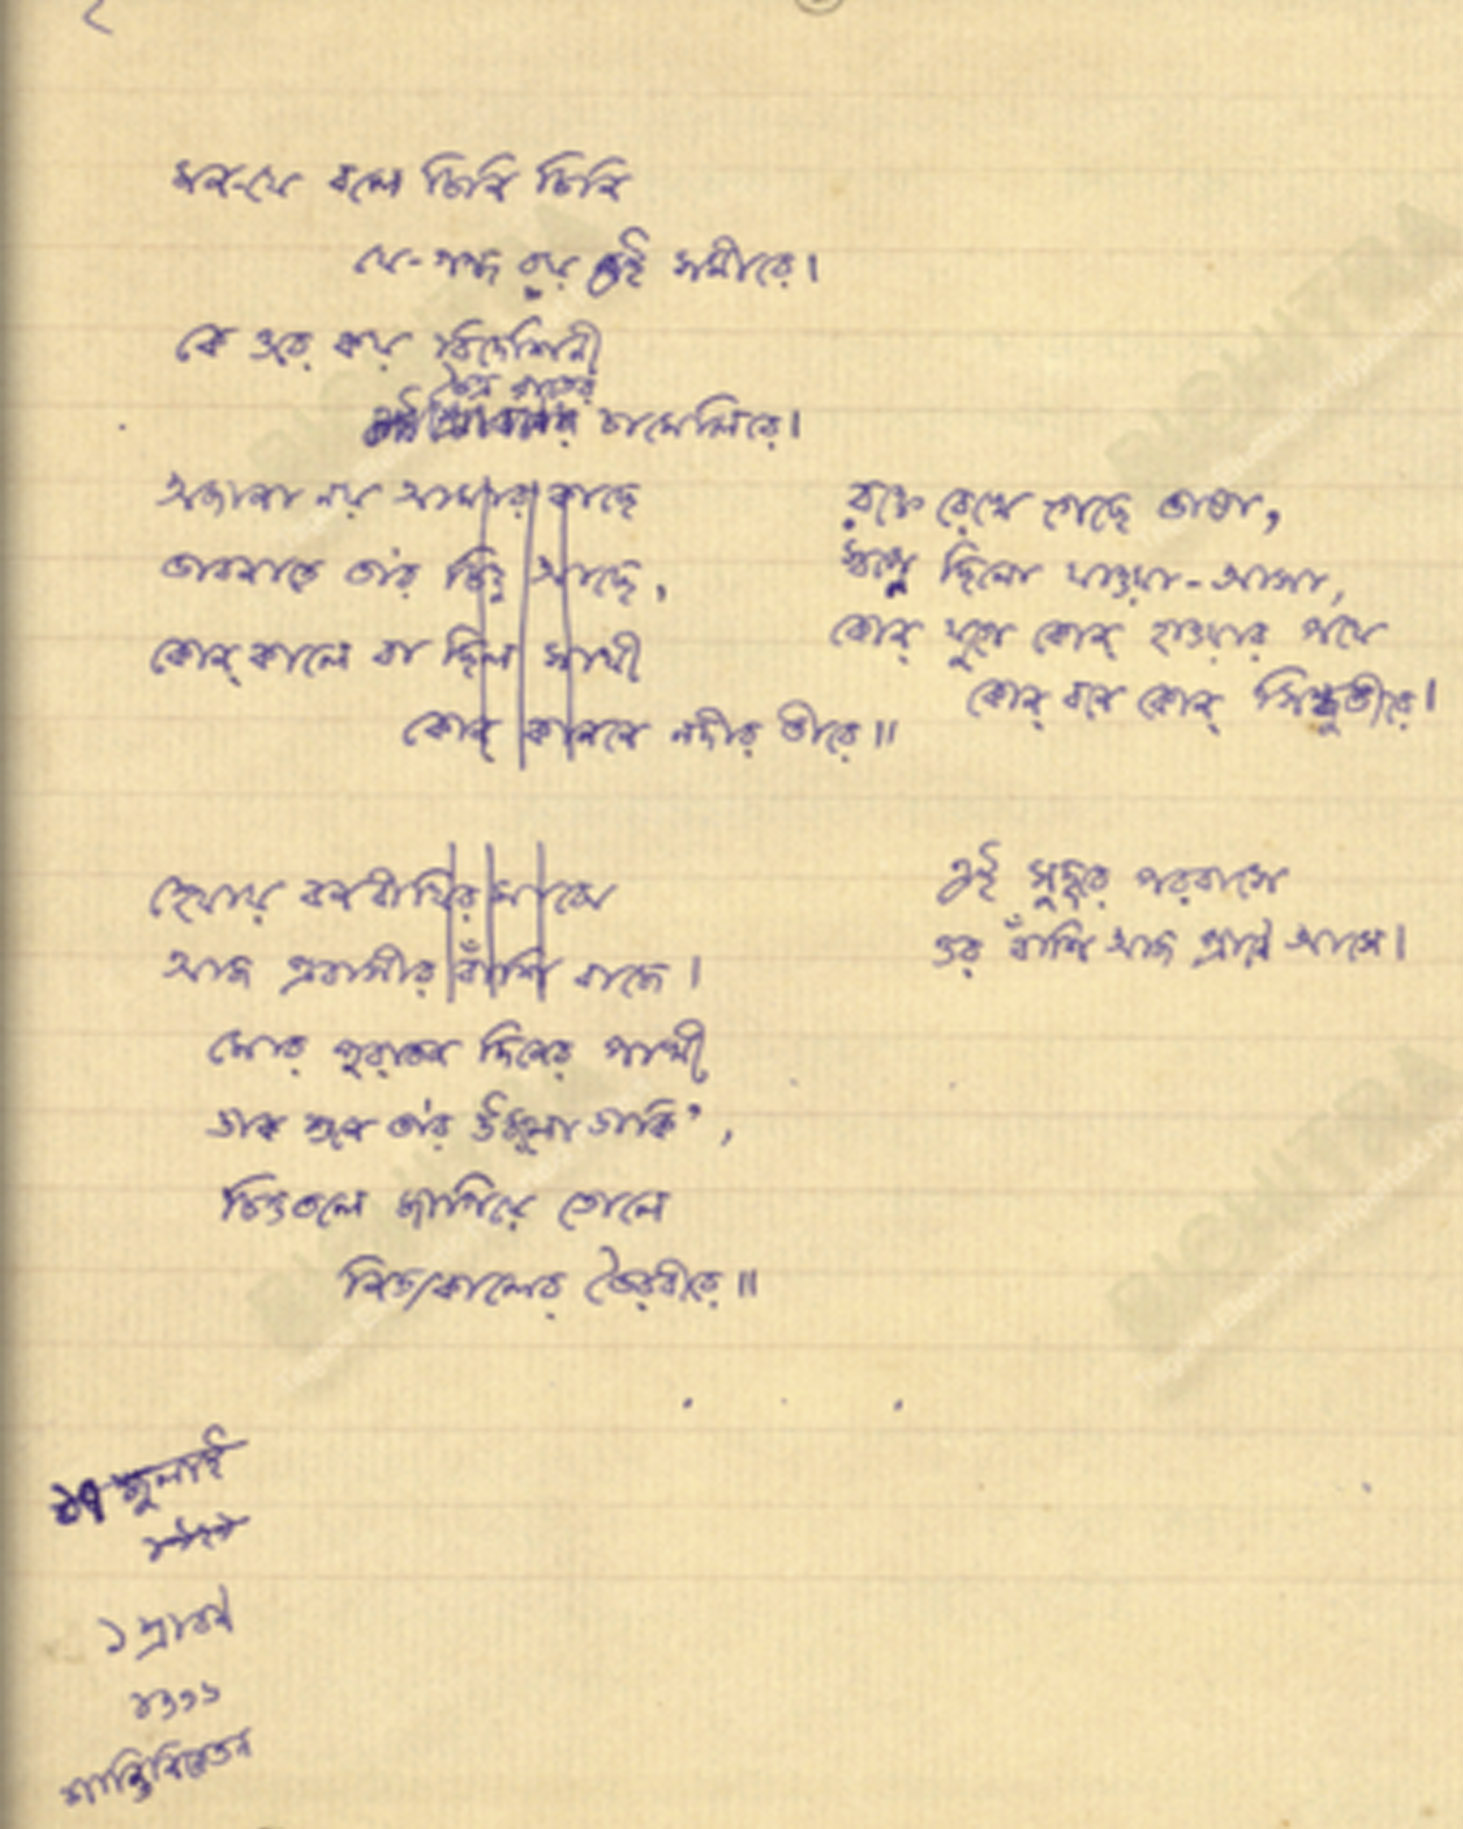 ২
মন-যে বলে চিনি চিনি
যে-গন্ধ বয় এই সমীরে।
কে ওরে কয় বিদেশিনী
চৈত্র রাতের
চামেলিরে।
অজানা নয় আমার কাছে
ভাবনাতে তা'র চিহ্ন আছে,
কোন্ কালে বা ছিল সাথী
কোন্ কাননে নদীর তীরে॥
রক্তে রেখে গেছে ভাষা,
স্বপ্নে ছিলো যাওয়া-আসা,
কোন্ যুগে কোন্ হাওয়ার পথে
কোন্ বনে কোন্ সিন্ধুতীরে।
হেথায় বনবীথির মাঝে
আজ প্রবাসীর বাঁশি বাজে।
এই সুদূরে পরবাসে
ওর বাঁশি আজ প্রাণে আসে।
মোর পুরাতন দিনের পাখী
ডাক শুনে তা'র উঠলো ডাকি',
চিত্ততলে জাগিয়ে তোলে
নিত্যকালের ভৈরবীরে॥
১৭ জুলাই
১ শ্রাবণ
১৩৩১
শান্তিনিকেতন